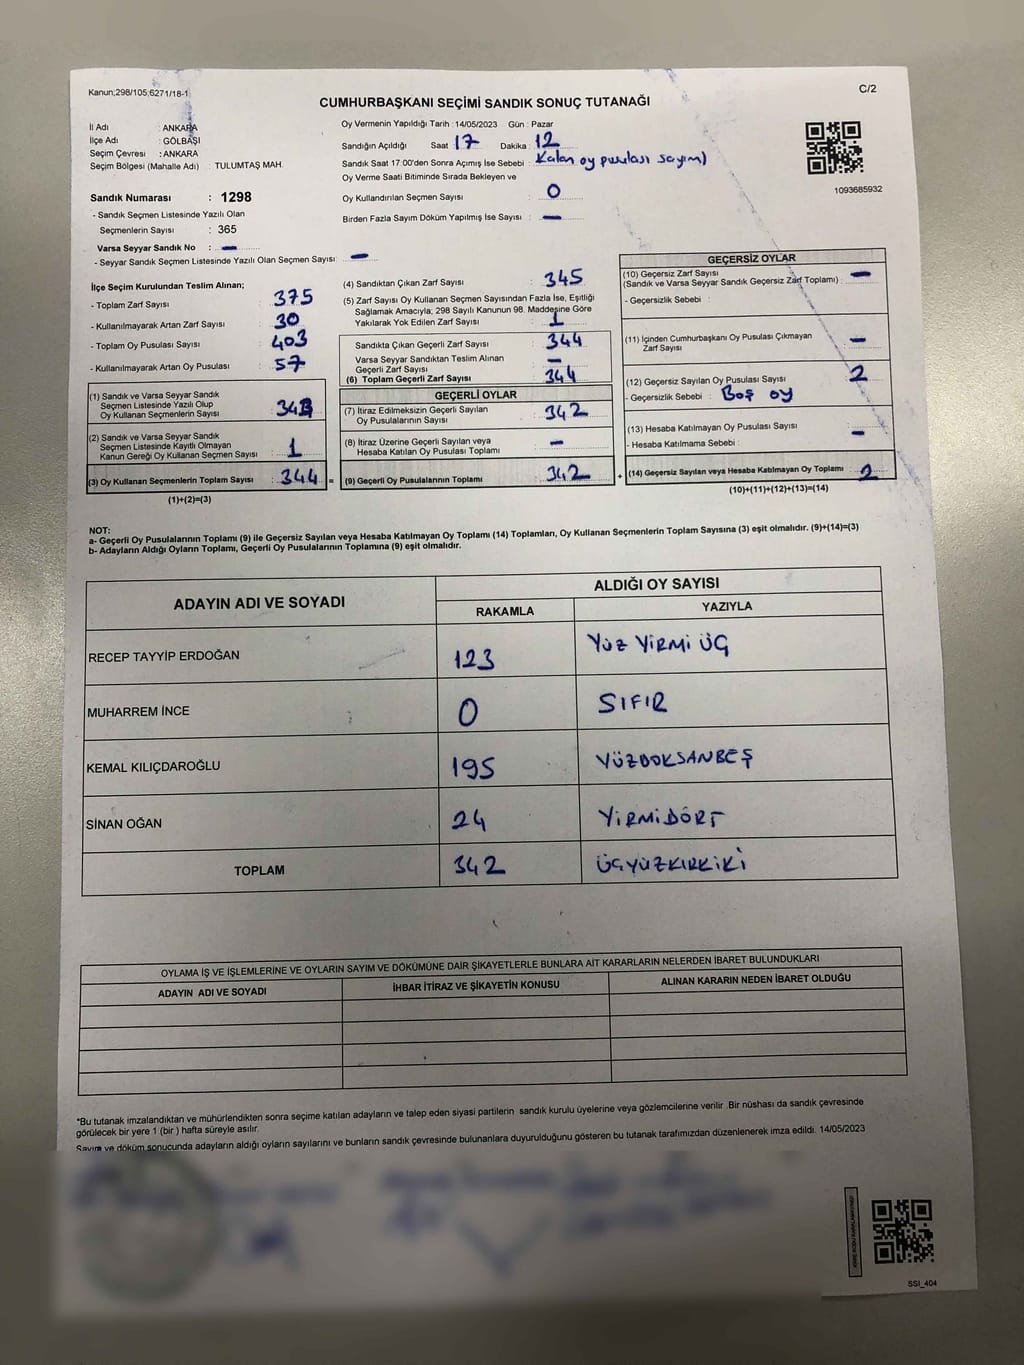 Kanun;298/105;6271/18-1
C/2
CUMHURBAŞKANI SEÇİMİ SANDIK SONUÇ TUTANAĞI
İl Adı : ANKARA
İlçe Adı : GÖLBAŞI
Seçim Çevresi : ANKARA
Seçim Bölgesi (Mahalle Adı) : TULUMTAŞ MAH.
Sandık Numarası : 1298
- Sandık Seçmen Listesinde Yazılı Olan
Seçmenlerin Sayısı : 365
Varsa Seyyar Sandık No : –
- Seyyar Sandık Seçmen Listesinde Yazılı Olan Seçmen Sayısı : –
Oy Vermenin Yapıldığı Tarih : 14/05/2023 Gün : Pazar
Sandığın Açıldığı Saat 17 Dakika : 12
Sandık Saat 17:00'den Sonra Açımış İse Sebebi : Kalan oy pusulası sayımı
Oy Verme Saati Bitiminde Sırada Bekleyen ve
Oy Kullandırılan Seçmen Sayısı : 0
Birden Fazla Sayım Döküm Yapılmış İse Sayısı : –
1093685932
İlçe Seçim Kurulundan Teslim Alınan;
- Toplam Zarf Sayısı : 375
- Kullanılmayarak Artan Zarf Sayısı : 30
- Toplam Oy Pusulası Sayısı : 403
- Kullanılmayarak Artan Oy Pusulası : 57
(1) Sandık ve Varsa Seyyar Sandık
Seçmen Listesinde Yazılı Olup
Oy Kullanan Seçmenlerin Sayısı : 343
(2) Sandık ve Varsa Seyyar Sandık
Seçmen Listesinde Kayıtlı Olmayan
Kanun Gereği Oy Kullanan Seçmen Sayısı : 1
(3) Oy Kullanan Seçmenlerin Toplam Sayısı : 344
(1)+(2)=(3)
(4) Sandıktan Çıkan Zarf Sayısı : 345
(5) Zarf Sayısı Oy Kullanan Seçmen Sayısından Fazla İse, Eşitliği
Sağlamak Amacıyla; 298 Sayılı Kanunun 98. Maddesine Göre
Yakılarak Yok Edilen Zarf Sayısı : 1
Sandıkta Çıkan Geçerli Zarf Sayısı : 344
Varsa Seyyar Sandıktan Teslim Alınan
Geçerli Zarf Sayısı : –
(6) Toplam Geçerli Zarf Sayısı : 344
GEÇERLİ OYLAR
(7) İtiraz Edilmeksizin Geçerli Sayılan
Oy Pusulalarının Sayısı : 342
(8) İtiraz Üzerine Geçerli Sayılan veya
Hesaba Katılan Oy Pusulası Toplamı : –
= (9) Geçerli Oy Pusulalarının Toplamı : 342
GEÇERSİZ OYLAR
(10) Geçersiz Zarf Sayısı
(Sandık ve Varsa Seyyar Sandık Geçersiz Zarf Toplamı) : –
- Geçersizlik Sebebi :
(11) İçinden Cumhurbaşkanı Oy Pusulası Çıkmayan
Zarf Sayısı : –
(12) Geçersiz Sayılan Oy Pusulası Sayısı : 2
- Geçersizlik Sebebi : Boş oy
(13) Hesaba Katılmayan Oy Pusulası Sayısı : –
- Hesaba Katılmama Sebebi :
+ (14) Geçersiz Sayılan veya Hesaba Katılmayan Oy Toplamı : 2
(10)+(11)+(12)+(13)=(14)
NOT:
a- Geçerli Oy Pusulalarının Toplamı (9) ile Geçersiz Sayılan veya Hesaba Katılmayan Oy Toplamı (14) Toplamları, Oy Kullanan Seçmenlerin Toplam Sayısına (3) eşit olmalıdır. (9)+(14)=(3)
b- Adayların Aldığı Oyların Toplamı, Geçerli Oy Pusulalarının Toplamına (9) eşit olmalıdır.
ADAYIN ADI VE SOYADI
ALDIĞI OY SAYISI
RAKAMLA YAZIYLA
RECEP TAYYİP ERDOĞAN 123 YÜZ YİRMİ ÜÇ
MUHARREM İNCE 0 SIFIR
KEMAL KILIÇDAROĞLU 195 YÜZDOKSANBEŞ
SİNAN OĞAN 24 YİRMİDÖRT
TOPLAM 342 ÜÇYÜZKIRKİKİ
OYLAMA İŞ VE İŞLEMLERİNE VE OYLARIN SAYIM VE DÖKÜMÜNE DAİR ŞİKAYETLERLE BUNLARA AİT KARARLARIN NELERDEN İBARET BULUNDUKLARI
ADAYIN ADI VE SOYADI İHBAR İTİRAZ VE ŞİKAYETİN KONUSU ALINAN KARARIN NEDEN İBARET OLDUĞU
*Bu tutanak imzalandıktan ve mühürlendikten sonra seçime katılan adayların ve talep eden siyasi partilerin sandık kurulu üyelerine veya gözlemcilerine verilir .Bir nüshası da sandık çevresinde
görülecek bir yere 1 (bir ) hafta süreyle asılır.
Sayım ve döküm sonucunda adayların aldığı oyların sayılarını ve bunların sandık çevresinde bulunanlara duyurulduğunu gösteren bu tutanak tarafımızdan düzenlenerek imza edildi. 14/05/2023
SSI_404